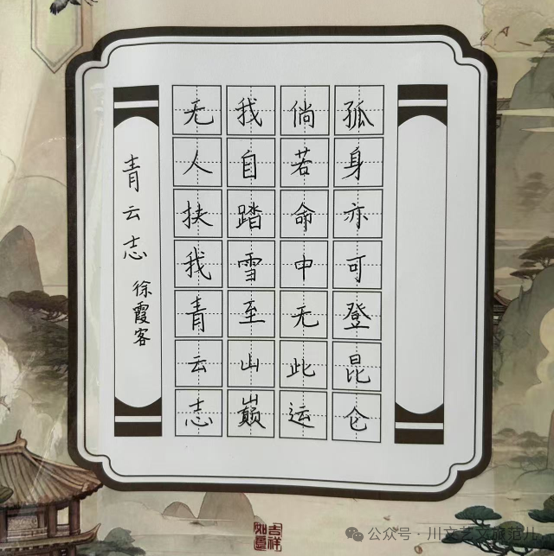 青云志
徐霞客
无我倘孤
人自若身
扶踏命亦
我雪中可
青至无登
云山此昆
志巅运仑
吉祥如意
公众号·川文旅范儿